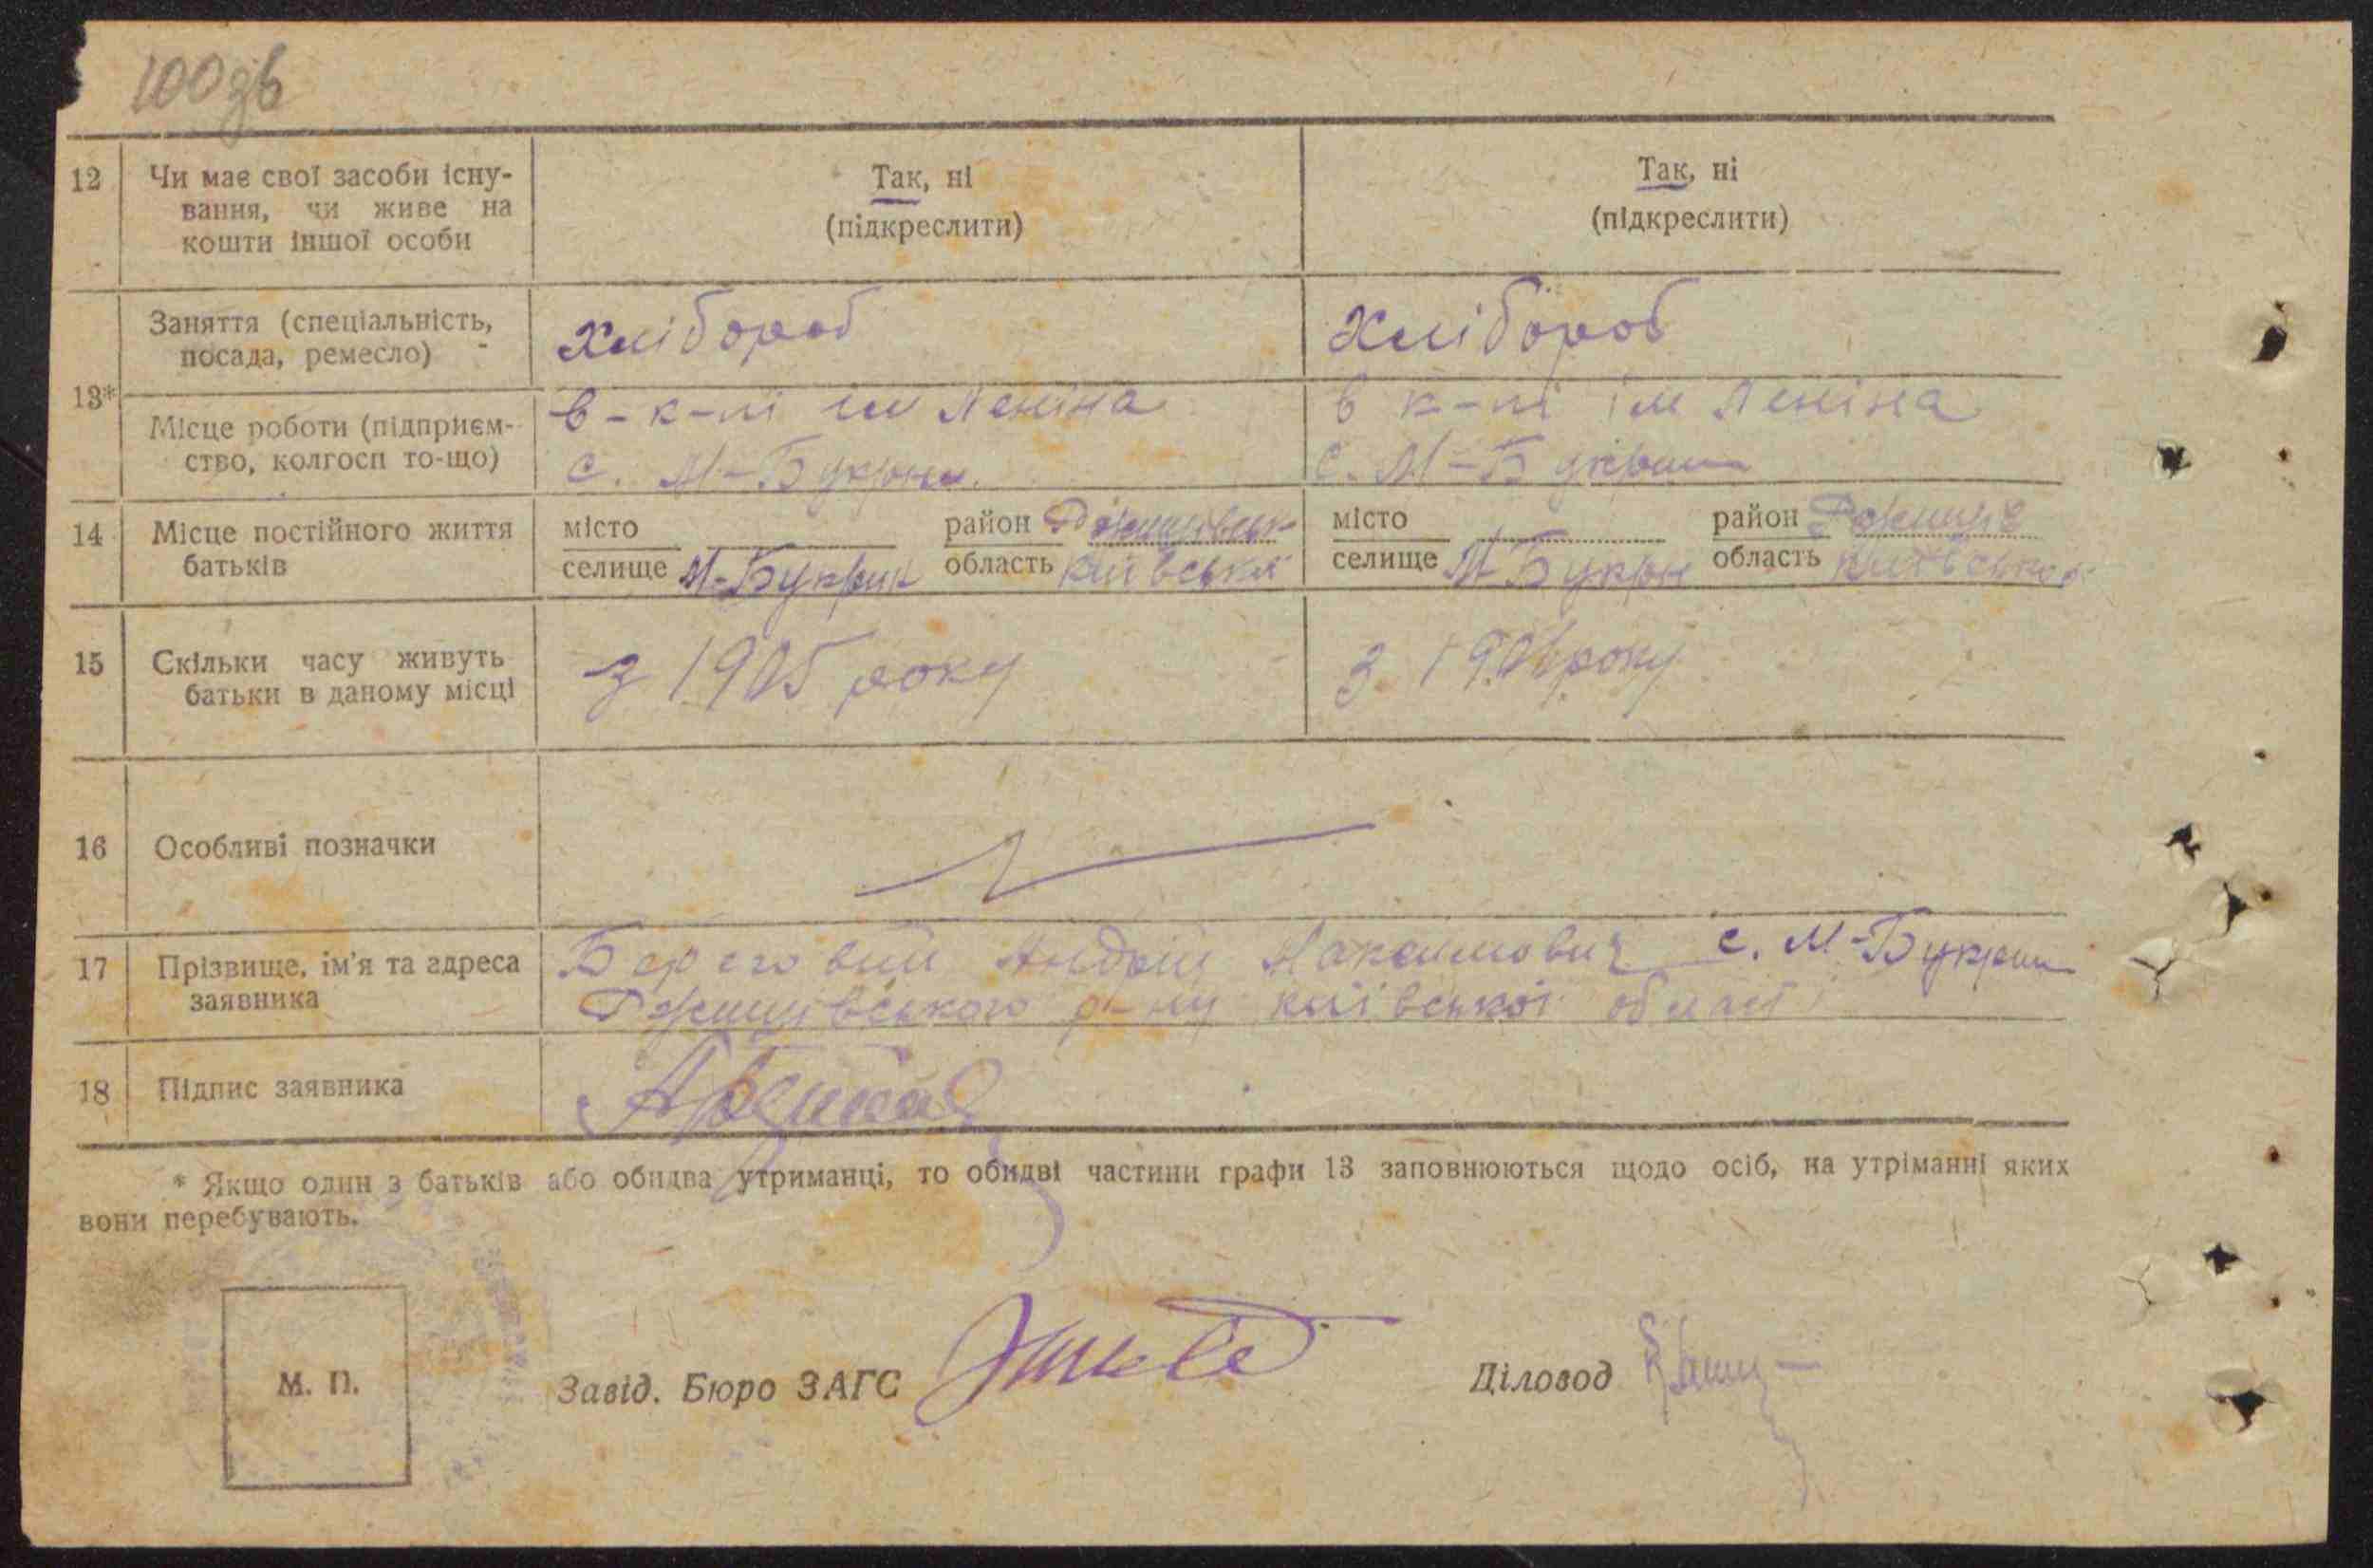 100зв
12 Чи має свої засоби існу-
вання, чи живе на
кошти іншої особи
Так, ні
(підкреслити)
Так, ні
(підкреслити)
13*
Заняття (спеціальність,
посада, ремесло)
хлібороб
хлібороб
Місце роботи (підприєм-
ство, колгосп то-що)
в-к-пі ім Леніна
с. М-Букрин
в к-пі ім Леніна
с. М-Букрин
14 Місце постійного життя
батьків
місто район Ржищівськ
селище М-Букрин область Київська
місто район Ржищів
селище М-Букрин область Київська
15 Скільки часу живуть
батьки в даному місці
з 1905 року
з 190 року
16 Особливі позначки
17 Прізвище, ім'я та адреса
заявника
Береговий Андрій Максимович с. М-Букрин
Ржищівського р-ну київської області
18 Підпис заявника
* Якщо один з батьків або обидва утриманці, то обидві частини графи 13 заповнюються щодо осіб, на утріманні яких
вони перебувають.
М. П.
Завід. Бюро ЗАГС
Діловод